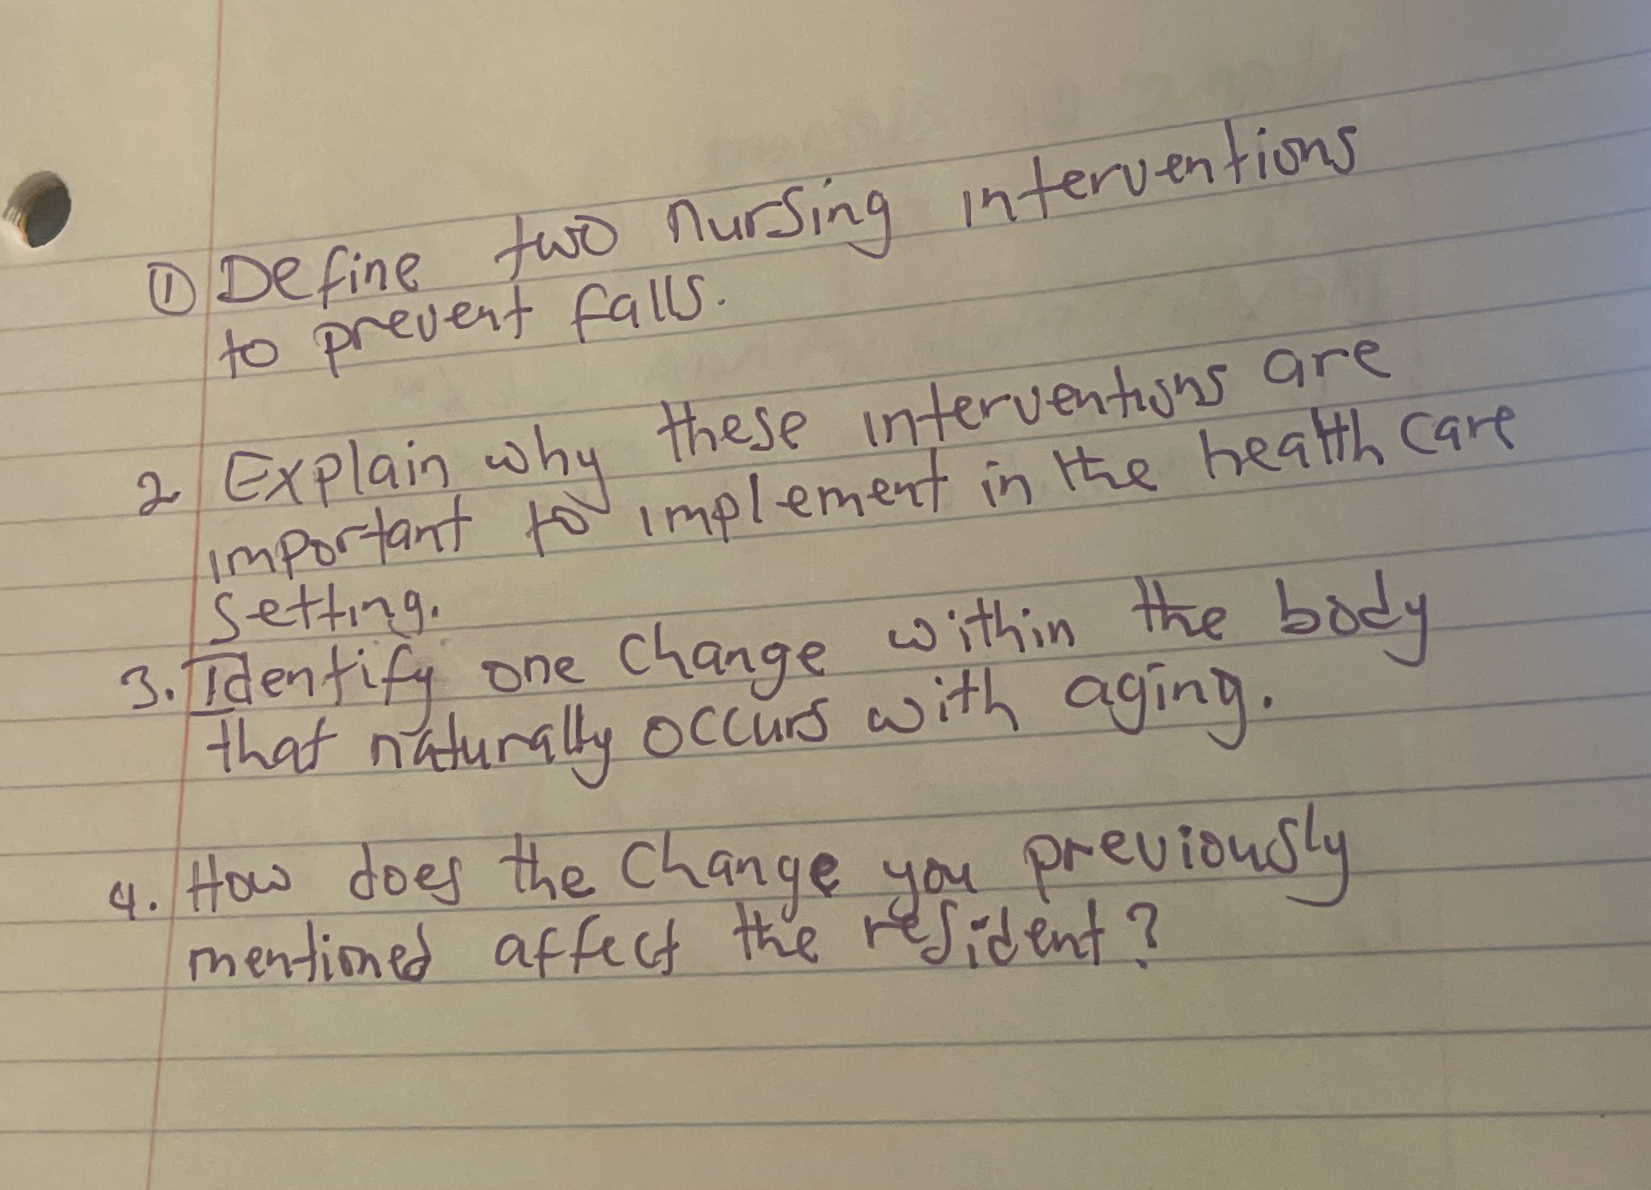 ① Define two nursing interventions
to prevent falls.
2 Explain why these interventions are
important to implement in the health care
setting.
3. Identify one change within the body
that naturally occurs with aging.
4. How does the change you previously
mentioned affect the resident?